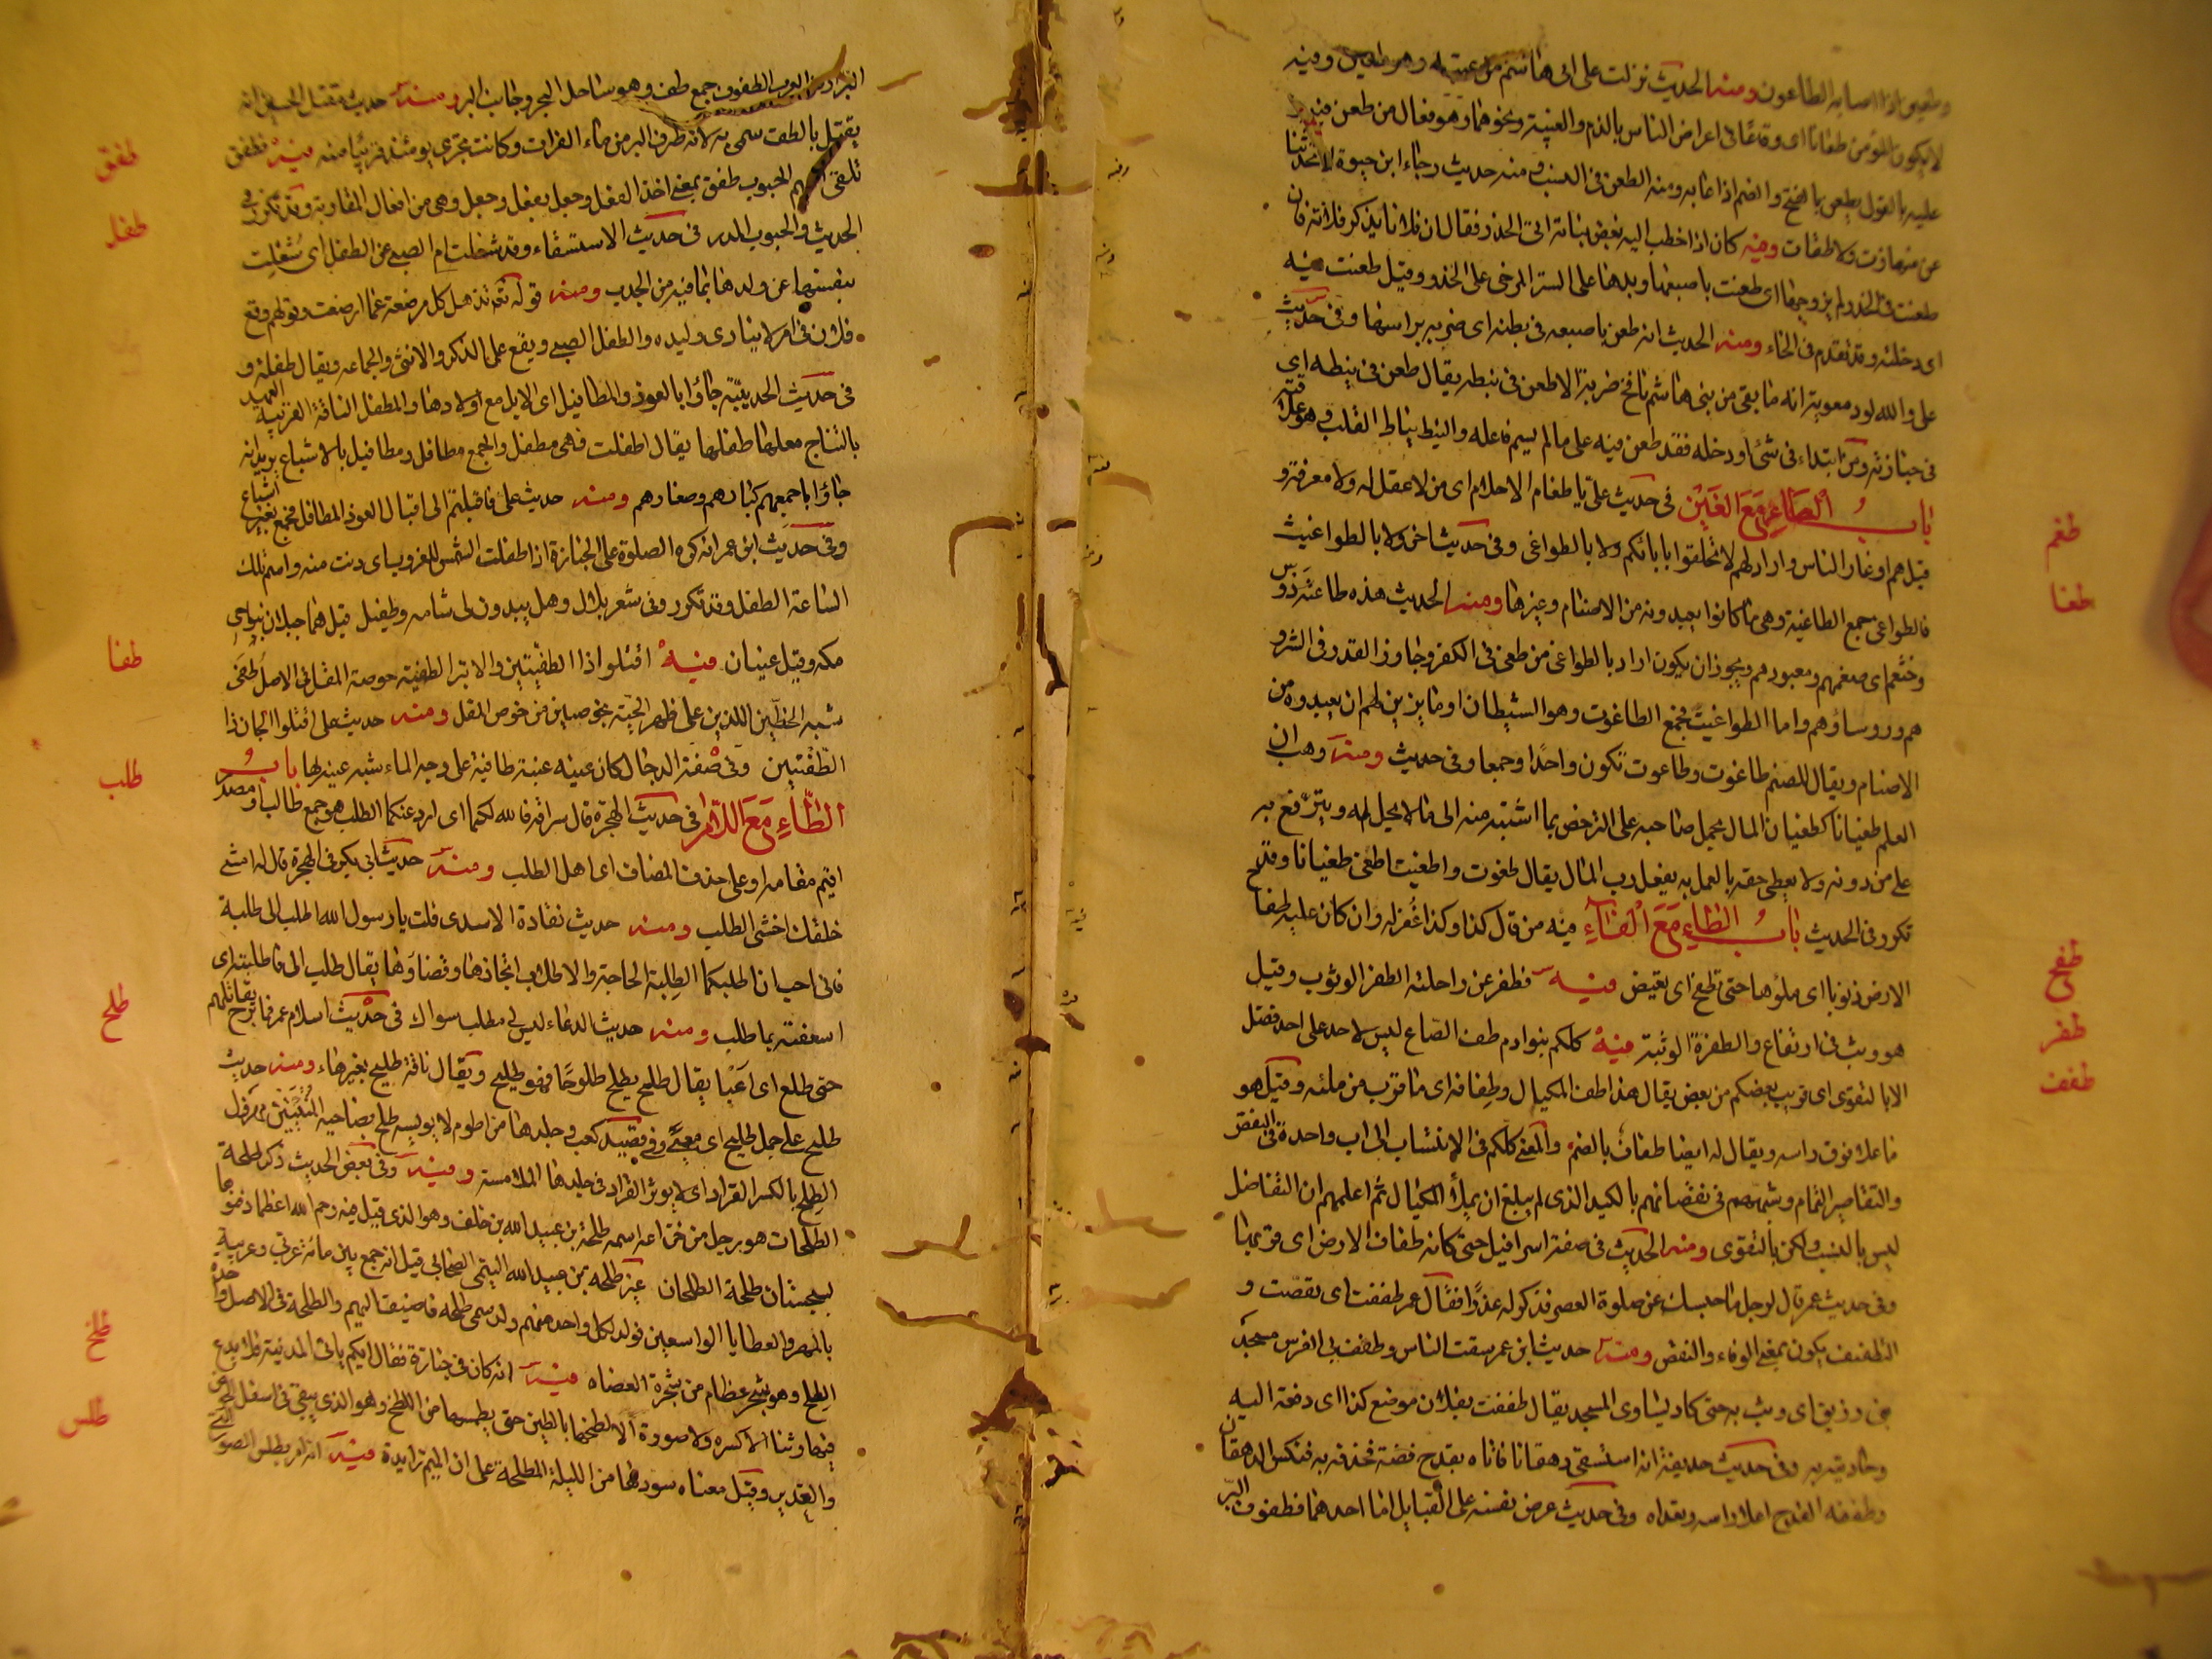 وطعين اذا اصابه الطاعون ومنه الحديث نزلت على ابى هاشم بن عتبة وهو طعين وفيه
لا يكون المؤمن طعانا اى وقاعا فى اعراض الناس بالذم والغيبة ونحوهما وهو فعال من طعن فيه
عليه بالقول يطعن بالفتح والضم اذا عابه ومنه الطعن فى النسب ومنه حديث رجاء ابن حيوة لا تحدثنا
عن متهارت ولا طعان وفيه كان اذا خطب اليه بعض بناته اتى الخدر فقال ان فلانا يذكر فلانة فان
طعنت فى الخدر لم يزوجها اى طعنت باصبعها ويدها على الستر المرخى على الخدر وقيل طعنت فيه
اى دخلته وقد تقدم فى الخاء ومنه الحديث انه طعن باصبعه فى بطنه اى ضربه براسها وفى حديث
على والله لود معوية انه ما بقى من بنى هاشم نافخ ضرمة الا طعن فى نيطه يقال طعن فى نيطه اى
فى جنازته ومن ابتداء فى شئ او دخله فقد طعن فيه على ما لم يسم فاعله والنيط نياط القلب وهو علاقته
باب الطاء مع الغين فى حديث على يا طغام الاحلام اى من لا عقل له ولا معرفة و
قيل هم اوغاد الناس واراذلهم لا تحلفوا باباتكم ولا بالطواغى وفى حديث اخر ولا بالطواغيت
فالطواغى جمع الطاغية وهى ما كانوا يعبدونه من الاصنام وغيرها ومنه الحديث هذه طاغية دوس
وخثعم اى صنمهم ومعبودهم ويجوز ان يكون اراد بالطواغى من طغى فى الكفر وجاوز القدر فى الشر و
هم وروساؤهم واما الطواغيت فجمع الطاغوت وهو الشيطان او ما يزين لهم ان يعبدوه من
الاصنام ويقال للصنم طاغوت وطاعوت تكون واحدا وجمعا وفى حديث ومنه وهب ان
العلم طغيانا كطغيان المال يحمل صاحبه على الترخص بما اشتبه منه الى ما لا يحل له ويترفع به
على من دونه ولا يعطى حقه بالعمل به يفعل رب المال يقال طغوت واطغيت اطغى طغيانا وقد
تكرر فى الحديث باب الطاء مع الفاء فيه من قال كذا وكذا غفر له وان كان عليه طفاح
الارض ذنوبا اى ملؤها حتى تطفح اى تفيض فيه فطفر عن راحلته الطفر الوثوب وقيل
هو وثب فى ارتفاع والطفرة الوثبة فيه كلكم بنو ادم طف الصاع ليس لاحد على احد فضل
الا بالتقوى اى قريب بعضكم من بعض يقال هذا طف المكيال وطفافه اى ما قرب من ملئه وقيل هو
ما علا فوق راسه ويقال له ايضا طفاف بالضم والمعنى كلكم فى الانتساب الى اب واحد فى النقص
والتقاصر التمام وشبههم فى نقصانهم بالكيل الذى لم يبلغ ان يملأ المكيال ثم اعلمهم ان التفاضل
ليس بالنسب ولكن بالتقوى ومنه الحديث فى صفة اسرافيل حتى كانه طفاف الارض اى قربها
وفى حديث عمر قال لرجل ما حبسك عن صلوة العصر فذكر له عذرا فقال عمر طففت اى نقصت و
التطفيف يكون بمعنى الوفاء والنقص ومنه حديث ابن عمر سبقت الناس وطفف بى الفرس مسجد
بنى زريق اى وثب به حتى كاد يساوى المسجد يقال طففت بفلان موضع كذا اى دفعة اليه
وحاذيته به وفى حديث حذيفة انه استسقى دهقانا فاتاه بقدح فضة فحذفه به فنكس الدهقان
وطففه القدح اعلا راسه وتعداه وفى حديث عرض نفسه على القبايل اما احدهما فطفوف البر
البر وارض العرب الطفوف جمع طف وهو ساحل البحر وجانب البر ومنه حديث مقتل الحسين انه
يقتل بالطف سمى به لانه طرف البر من ماء الفرات وكانت تجرى يومئذ قريبا منه فيه فطفق
تلقى اليهم الجبوب طفق بمعنى اخذ الفعل وجعل يفعل وجعل وهى من افعال المقاربة وقد تكرر فى
الحديث والجبوب المدر فى حديث الاستسقاء وقد شغلت ام الصبى عن الطفل اى شغلت
بنفسها عن ولدها بما فيه من الجدب ومنه قوله تعه تذهل كل مرضعة عما ارضعت وقولهم وقع
فلان فى امر لا ينادى وليده والطفل الصبى ويقع على الذكر والانثى والجماعة ويقال طفلة و
فى حديث الحديبية جاؤا بالعوذ والمطافيل اى الابل مع اولادها والمطفل الناقة القريبة العهد
بالنتاج معها طفلها يقال اطفلت فهى مطفل والجمع مطافل ومطافيل بالاشباع يريد انه
جاؤا باجمعهم كبارهم وصغارهم ومنه حديث على فاقبلتم الى اقبال العوذ المطافل فجمع بغير اشباع
وفى حديث ابن عمر انه كره الصلوة على الجنازة اذا طفلت الشمس للغروب اى دنت منه واسم تلك
الساعة الطفل وقد تكرر وفى شعر بلال وهل يبدون لى شامه وطفيل قيل هما جبلان بنواحى
مكه وقيل عينان فيه اقتلوا ذا الطفيتين والابتر الطفية خوصة المقل فى الاصل طفى
شبه الخطين اللذين على ظهر الحية بخوصين من خوص المقل ومنه حديث على اقتلوا الجان ذا
الطفيتين وفى صفة الدجال كان عينه عنبة طافية على وجه الماء شبه عينه بها باب
الطاء مع اللام فى حديث الهجرة قال سراقه فالله لكما اى ارد عنكما الطلب هو جمع طالب او مصدر
اقيم مقامه او على حذف المضاف اى اهل الطلب ومنه حديث ابى بكر فى الهجرة قال له امشى
خلفك اخشى الطلب ومنه حديث نقادة الاسدى قلت يا رسول الله اطلب الى طلبة
فانى احب ان اطلبكها الطلبة الحاجة والاطلاب انجازها وقضاؤها يقال طلب الى فاطلبته اى
اسعفته بما طلب ومنه حديث الدعاء ليس لى مطلب سواك فى حديث اسلام عمر فما برح يقاتلهم
حتى طلع اى اعيا يقال طلح يطلح طلوحا فهو طليح ويقال ناقة طليح بغير هاء ومنه حديث
طليح على جمل طليح اى معيى وفى قصيد كعب وجلدها من اطوم لا يويسه طلح بضاحية المتنين مهزول
الطلح بالكسر القراد اى لا يوثر القراد فى جلدها الملامسته ومنه وفى بعض الحديث ذكر طلحة
الطلحات هو رجل من خزاعه اسمه طلحة بن عبيد الله بن خلف وهو الذى قيل فيه رحم الله اعظما دفنوها
بسجستان طلحة الطلحات غير طلحة بن عبيد الله التيمى الصحابى قيل انه جمع بين مائة عربى وعربية
بالمهر والعطايا الواسعين فولد لكل واحد منهم ولد سمى طلحه فاضيف اليهم والطلحة فى الاصل واحدة
الطلح وهو شجر عظام من شجرة العضاه فيه انه كان فى جنازة فقال ايكم ياتى المدينة فلا يدع
فيها وثنا الا كسره ولا صورة الا لطخها بالطين حتى يطمسها من الطلخ وهو الذى يبقى فى اسفل الحوض
والغدير وقيل معناه سودها من الليلة المطلخة على ان الميم زايدة فيه انه امر بطلس الصور التى
طغم
طغا
طفح
طفر
طفف
طفق
طفل
طفا
طلب
طلح
طلخ
طلس